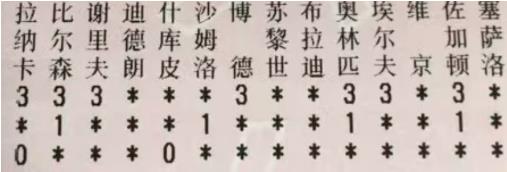 拉纳卡
比尔森
谢里夫
迪德朗
什库皮
沙姆洛
博德
苏黎世
布拉迪
奥林匹
埃尔夫
维京
佐加顿
塞萨洛
3 3 3 * * * 3 * * 3 3 * 3 *
* 1 * * * 1 * * * 1 * * 1 *
0 * * * 0 * * * * * * * * *